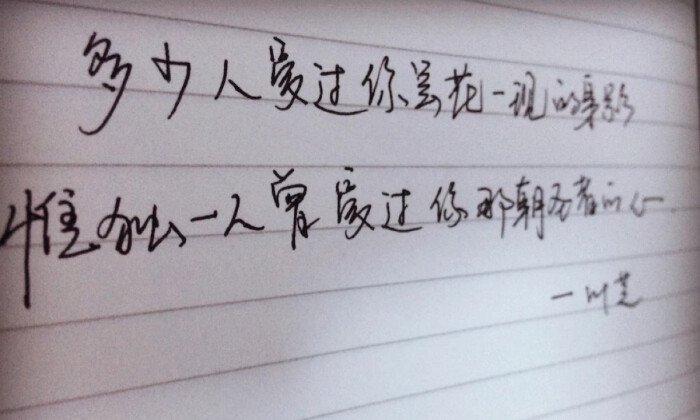 多少人爱过你昙花一现的身影
惟有一人曾爱过你那朝圣者的心
—叶芝